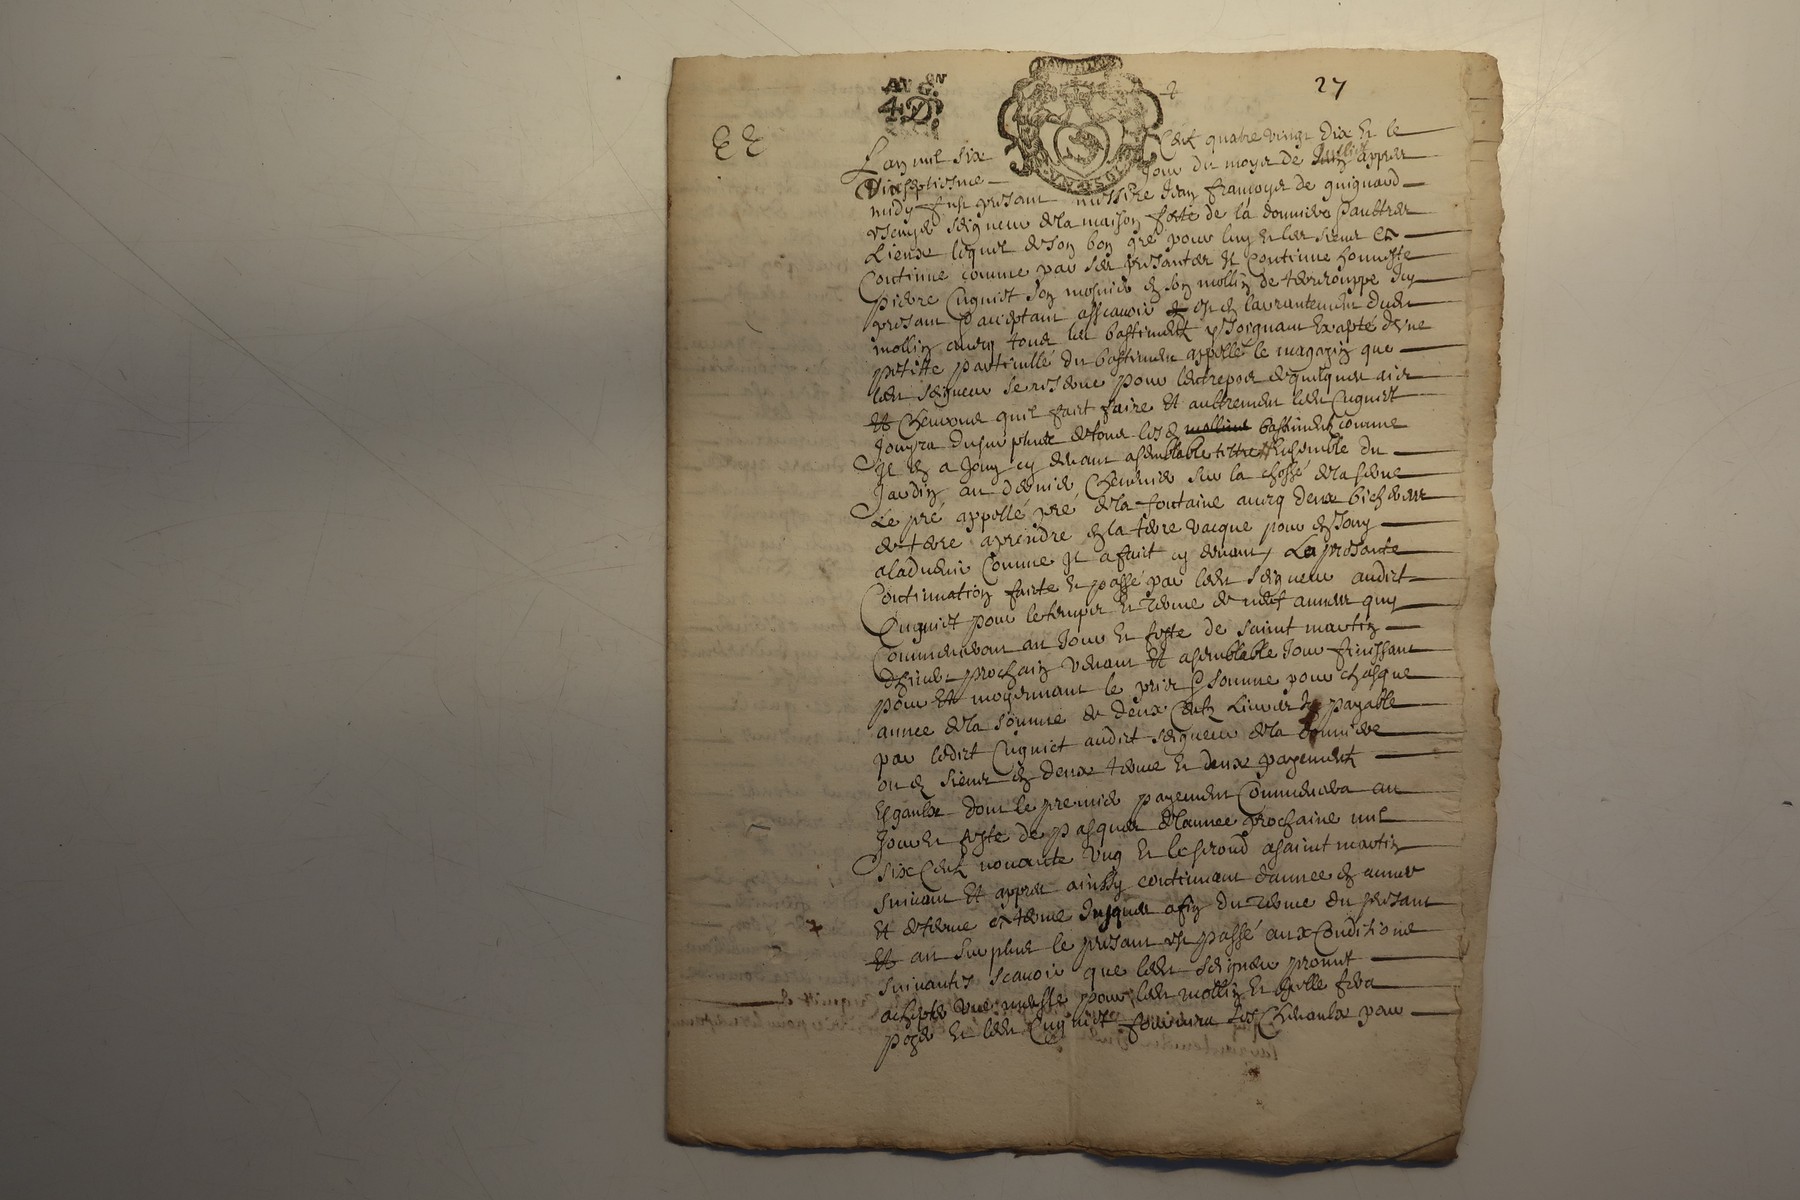 AVGEN
4 D.
27
EE
Lan mil six Centz quatre vingt dix Et le
Vinseptiesme Jour du moys de Juillet appres
midy fust presant messire Jean françoys de guignard
escuyer seigneur de la maison forte de la donniere & aultres
Lieux lequel de son bon gré pour luy Et les sieurs
Continue comme par ses presantes Et Continue honneste
pierre Cugniet son mosnier en son mollin de icy
presant & acceptant asscavoir est en larrantement dudit
mollin avecq tous les bastimentz y Joignant Exapté dune
petitte particulle du bastiment appellé le magazin que
ledit seigneur se reserve pour lentrepos de quelques aix
Et quil faict faire Et aultrement ledit Cugniet
Jouyra du surplus de tous les bastimentz comme
Il en a Jouy cy devant a semblable tittre Ensemble du
Jardin au dernier Cheneviere sur la chossé de la serve
Le pré appellé pré de la fontaine avecq deux bicherees
de terre a prendre en la terre vacque pour en Jouy
a ladvenir Comme Il a fait cy devant, La presante
Continuation faicte Et passé par ledit seigneur audict
Cugniet pour le temps Et terme de neuf annees quy
Commenceront au Jour Et feste de saint martin
dhiver prochain venant Et a semblable Jour finissant
pour Et moyennant le prix & somme pour chasque
annee de la somme de deux Centz Livres payable
par ledict Cugniet audict seigneur de la donniere
ou es siens en deux terme Et deux payementz
Esgaulx dont le premier payement Commencera au
Jour Et feste de pasques de lannee prochaine mil
six Centz nonante ung Et le segond a saint martin
suivant Et appres ainssy continuant dannee en annee
Et de terme en terme Jusques a fin du terme du presant
Et au surplus le presant est passé aux Conditions
suivantes scavoir que ledit seigneur promet
achepter une meulle pour ledit mollin Et Icelle fera
pozer Et ledit Cugniet fournira les Chevaulx pour